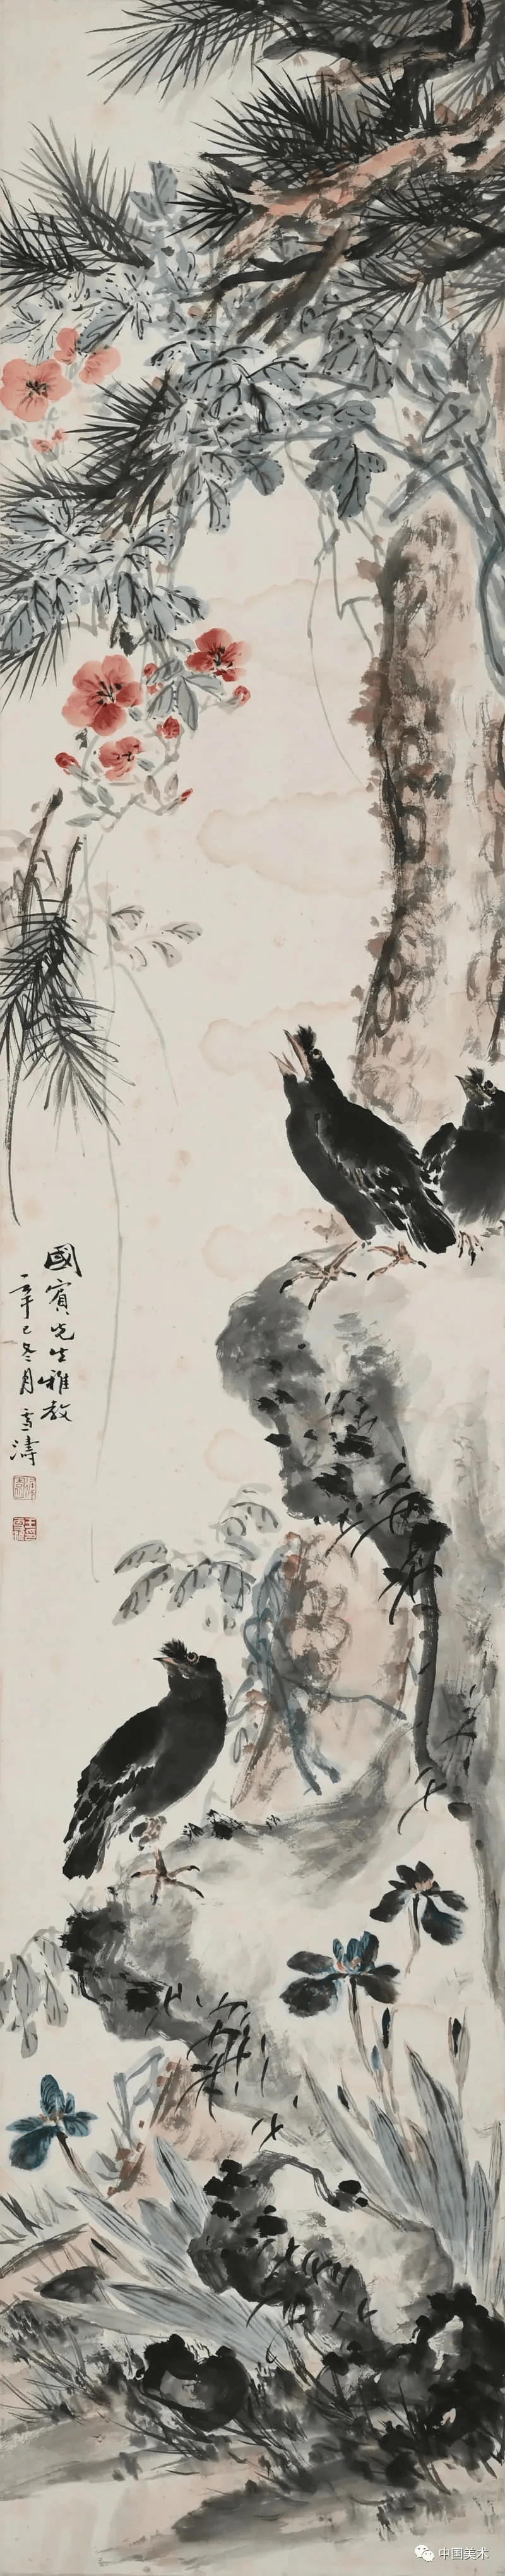 國賓先生雅教
辛巳冬月雪濤
中国美术